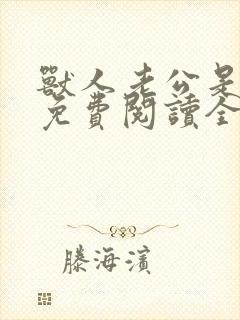 獸人老公是
免費閱讀全
滕海濱